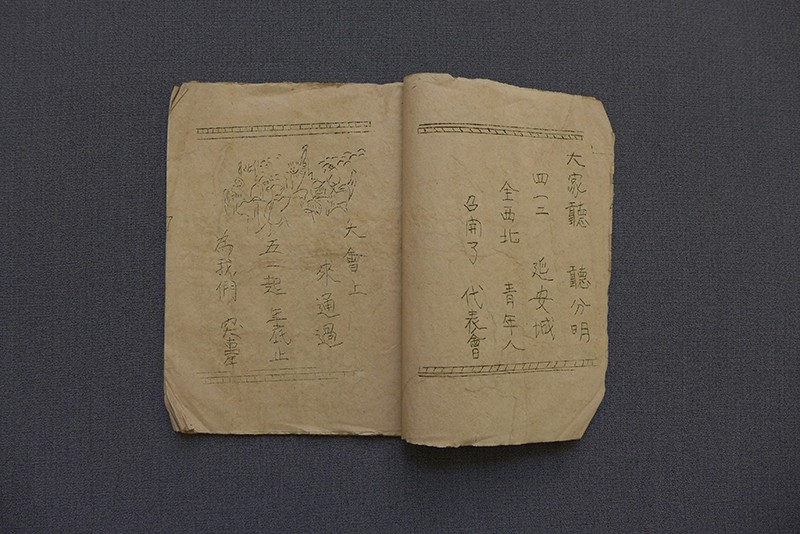 大家聽 聽分明
四一二 延安城
全西北 青年人
召開了 代表會
大會上
來通過
五一起 至底止
為我們 突擊